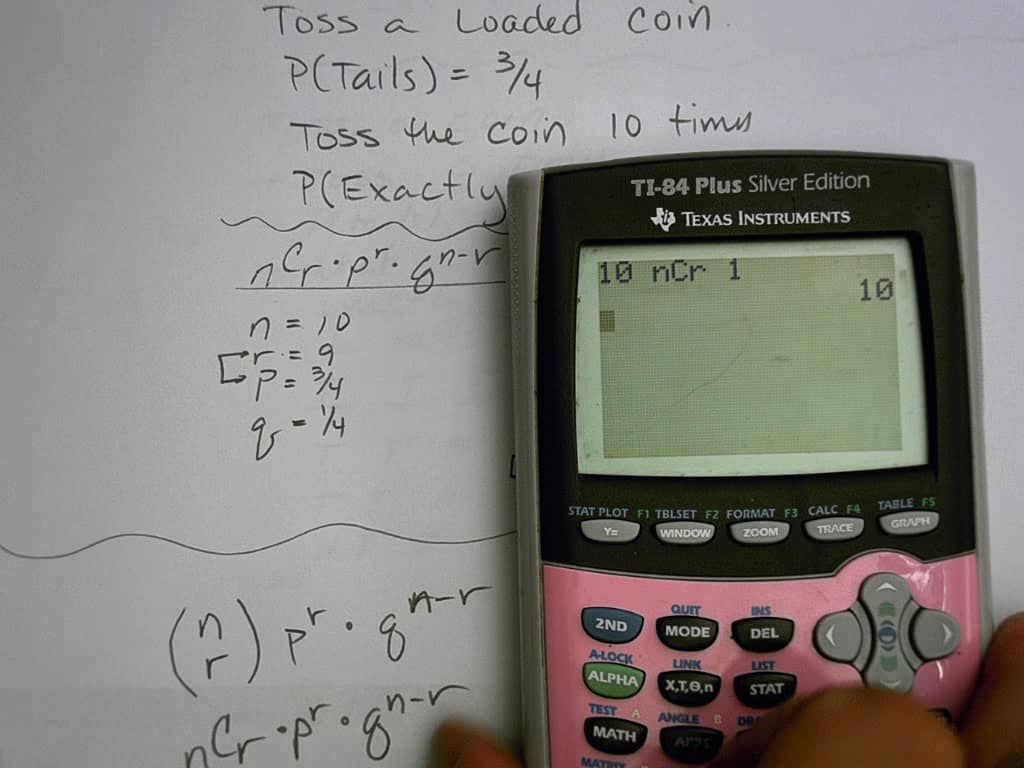 Toss a Loaded coin.
P(Tails) = 3/4
Toss the coin 10 times
P(Exactly
nCr · p^r · q^n-r
n = 10
r = 9
p = 3/4
q = 1/4
(n r) p^r · q^n-r
nCr · p^r · q^n-r
TI-84 Plus Silver Edition
TEXAS INSTRUMENTS
10 nCr 1
10
STAT PLOT F1 TBLSET F2 FORMAT F3 CALC F4 TABLE F5
Y= WINDOW ZOOM TRACE GRAPH
QUIT INS
2ND MODE DEL
A-LOCK LINK LIST
ALPHA X,T,Θ,n STAT
TEST A ANGLE B
MATH APPS